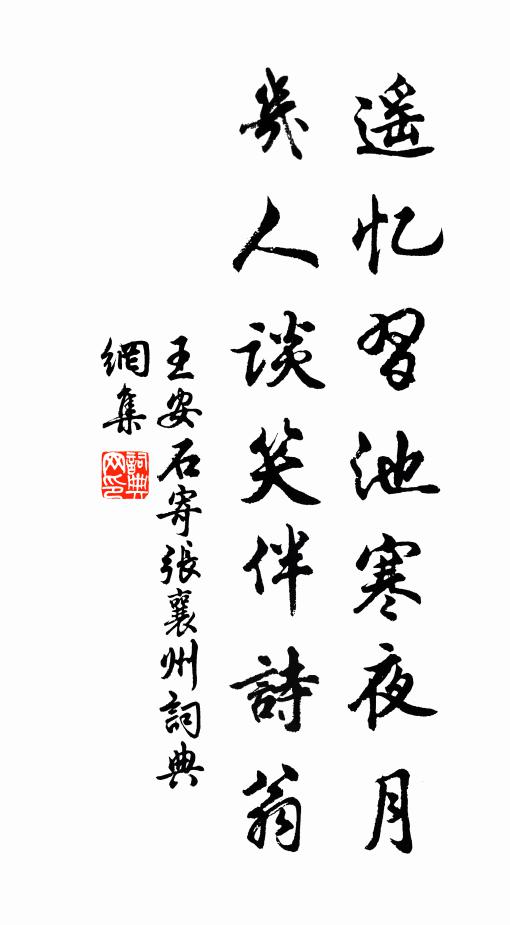 遥忆習池寒夜月
幾人谈笑伴詩翁
王安石寄張襄州詞典
網集
詞典
网印